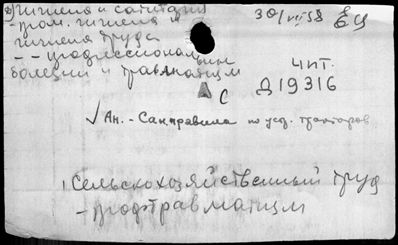 гигиена и санитария
- пром. гигиена и
гигиена труда
- - профессиональные
болезни и травматизм
30/VII 58
Чит.
Д19316
А с
√ Ан. - Санправила по тракторов
1 Сельскохозяйственный труд
- профтравматизм